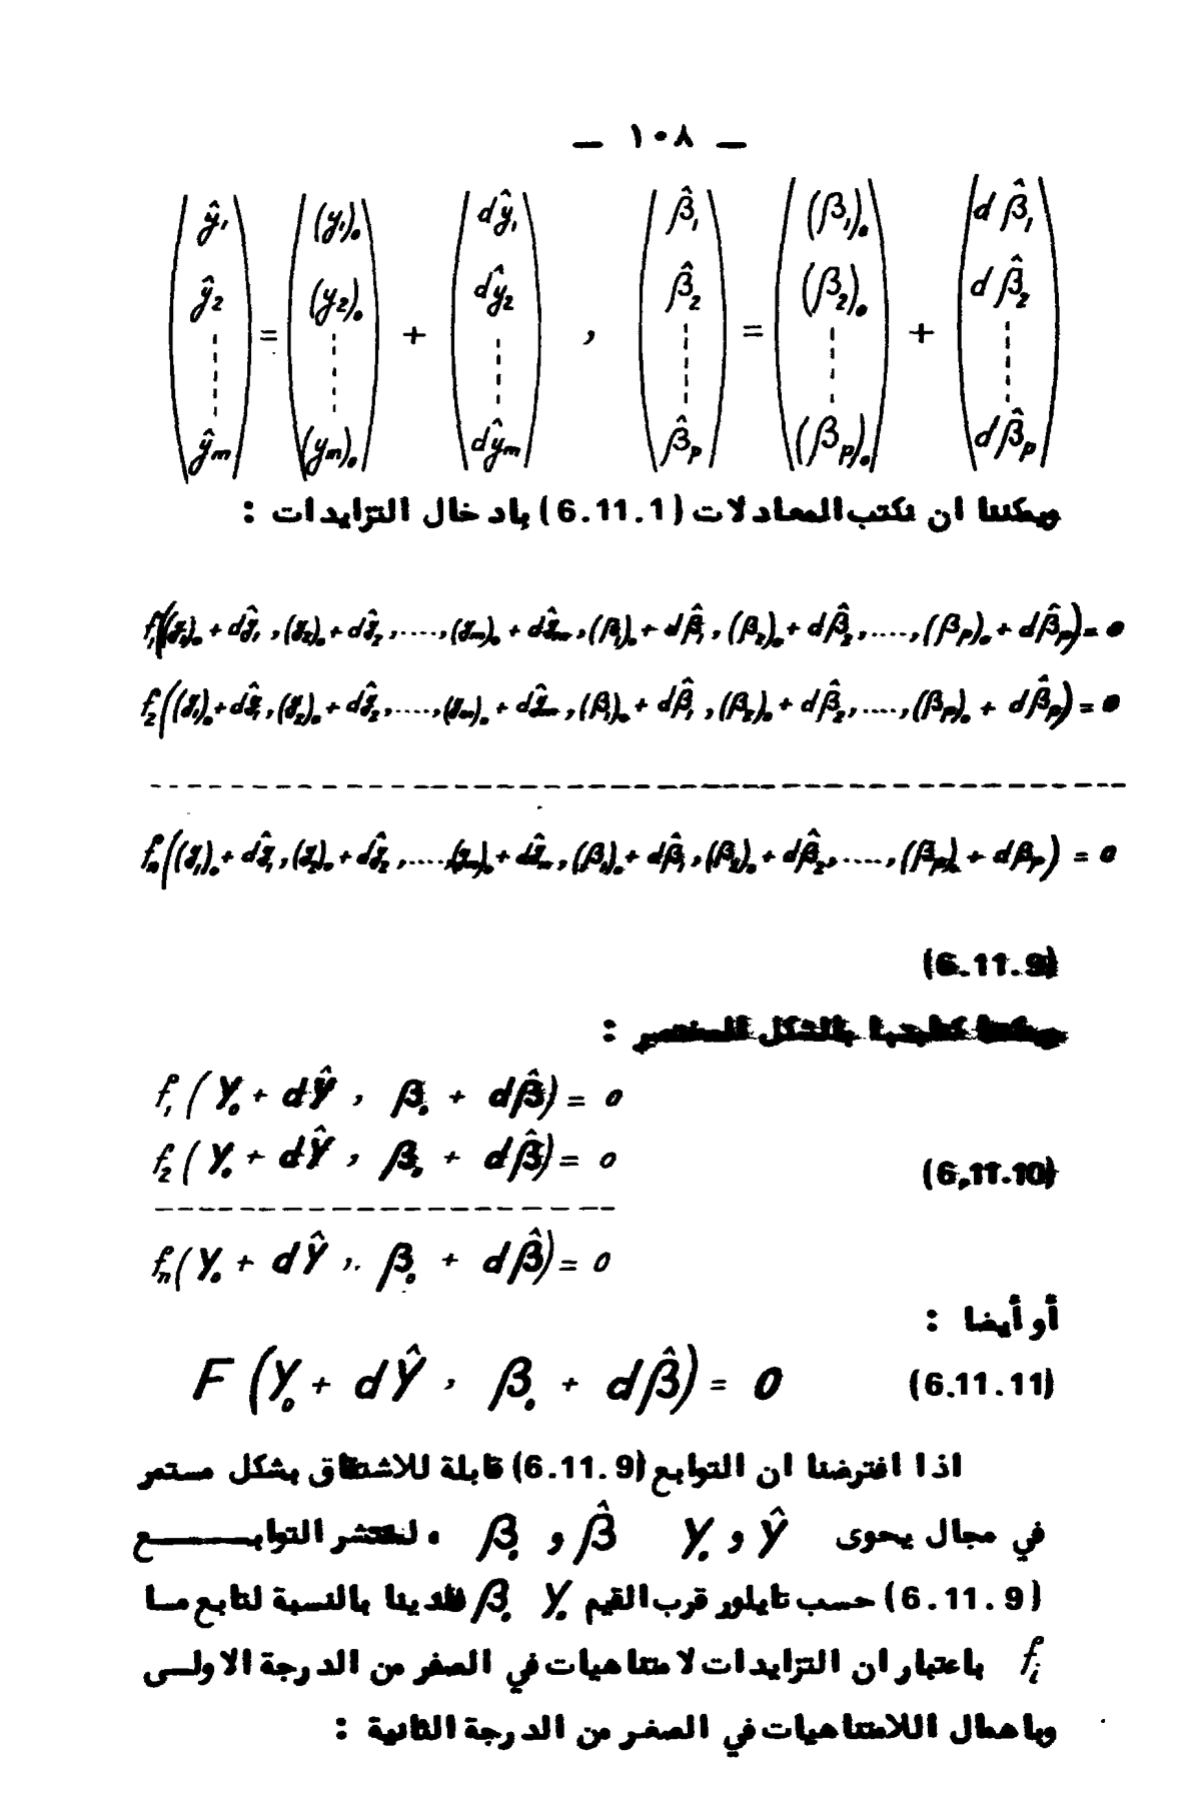 — ١٠٨ —
(ŷ₁ ŷ₂ ┆ ŷₘ) = ((y₁)₀ (y₂)₀ ┆ (yₘ)₀) + (dŷ₁ dŷ₂ ┆ dŷₘ) , (β̂₁ β̂₂ ┆ β̂ₚ) = ((β₁)₀ (β₂)₀ ┆ (βₚ)₀) + (dβ̂₁ dβ̂₂ ┆ dβ̂ₚ)
ويمكننا ان نكتب المعادلات (6.11.1) بادخال التزايدات :
f₁((y₁)₀ + dŷ₁ , (y₂)₀ + dŷ₂ , ....., (yₘ)₀ + dŷₘ , (β₁)₀ + dβ̂₁ , (β₂)₀ + dβ̂₂ , ...., (βₚ)₀ + dβ̂ₚ) = 0
f₂((y₁)₀ + dŷ₁ , (y₂)₀ + dŷ₂ , ....., (yₘ)₀ + dŷₘ , (β₁)₀ + dβ̂₁ , (β₂)₀ + dβ̂₂ , ...., (βₚ)₀ + dβ̂ₚ) = 0
fₙ((y₁)₀ + dŷ₁ , (y₂)₀ + dŷ₂ , .... (yₘ)₀ + dŷₘ , (β₁)₀ + dβ̂₁ , (β₂)₀ + dβ̂₂ , ....., (βₚ)₀ + dβₚ) = 0
(6.11.9)
ويمكننا كتابتها بالشكل المختصر :
f₁ ( Y₀ + dŶ , β₀ + dβ̂) = 0
f₂ ( Y₀ + dŶ , β₀ + dβ̂) = 0
(6,11.10)
fₙ ( Y₀ + dŶ , β₀ + dβ̂) = 0
أو أيضا :
F (Y₀ + dŶ , β₀ + dβ̂) = 0 (6.11.11)
اذا افترضنا ان التوابع (6.11.9) قابلة للاشتقاق بشكل مستمر
في مجال يحوى Ŷ و Y₀ β̂ و β₀ . لننتشر التوابـــــع
(6.11.9) حسب تايلور قرب القيم Y₀ β₀ فلدينا بالنسبة لتابع مـا
fᵢ باعتبار ان التزايدات لا متناهيات في الصغر من الدرجة الاولـى
وباهمال اللامتناهيات في الصغـر من الدرجة الثانية :